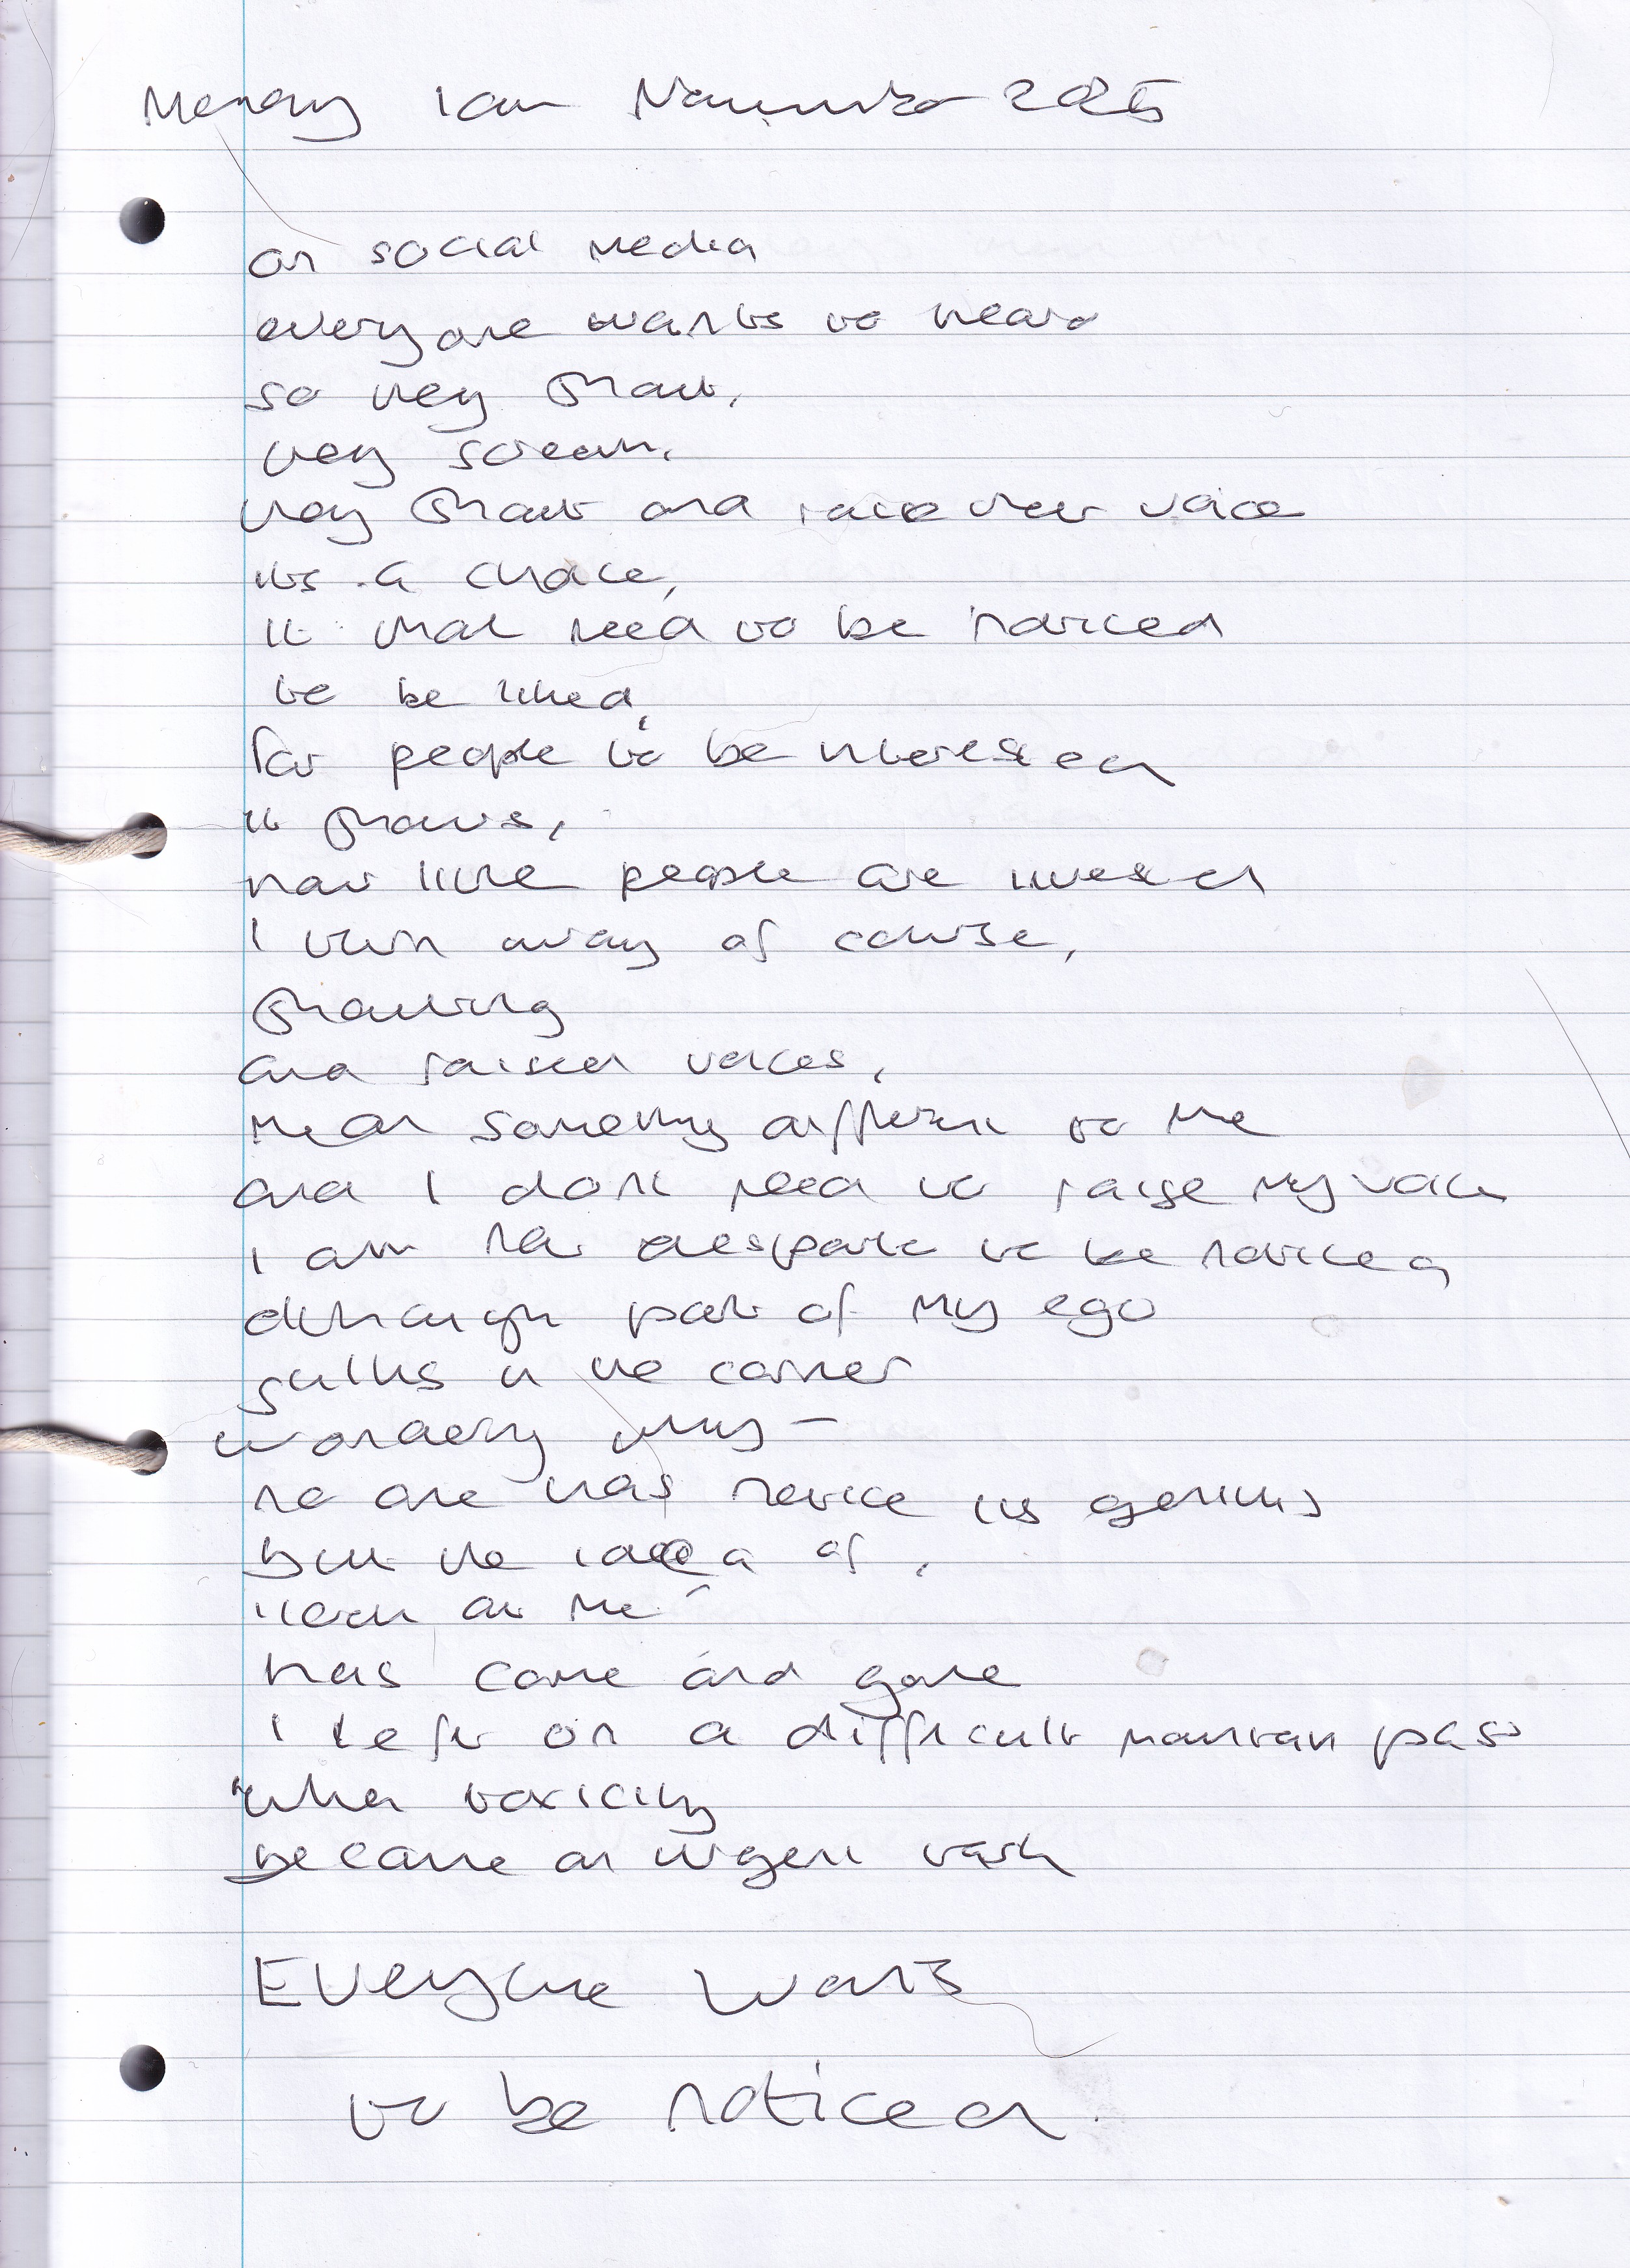 Monday 10th November 2025
on social media
everyone wants to heard
so they shout,
they scream,
they shout and raise their voice
its a choice,
it that need to be noticed
to be liked,
for people to be interested
it shows,
how little people are
I turn away of course,
shouting
and raised voices,
mean something different to me
and I dont need to raise my voice
I am not desperate to be noticed
although part of my ego
sulks in the corner
wondering why –
no one has notice its genius
but the idea of,
'look at me'
has come and gone
I left on a difficult mountain pass
when toxicity
became an urgent task
Everyone wants
to be noticed.